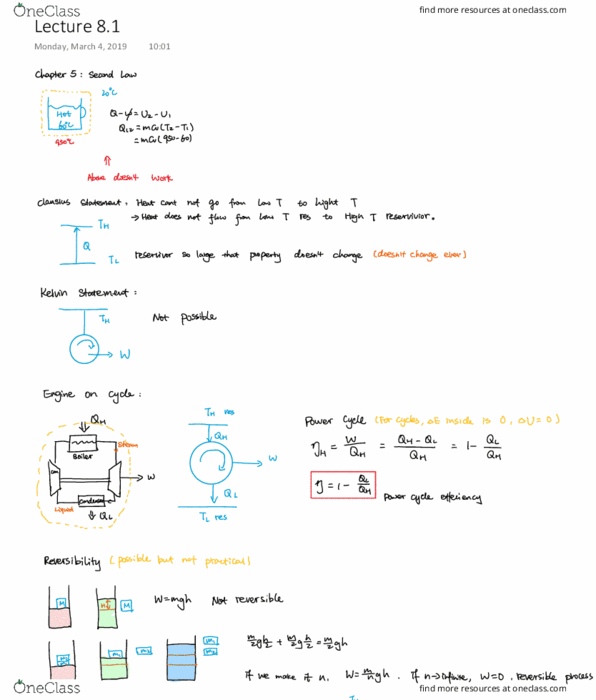 OneClass
find more resources at oneclass.com
Lecture 8.1
Monday, March 4, 2019 10:01
Chapter 5 : Second Law
20°C
Hot
60°C
950°C
Q-W = U₂ - U₁
Q₁₂ = mCv(T₂-T₁)
= mCv(950-60)
Above doesn't work
Clausius Statement. Heat cant not go from low T to hight T
→ Heat does not flow from low T res to High T reservivior.
TH
Q
TL
reservivor so large that property doesn't change (doesn't change ever)
Kelvin Statement :
TH
W
Not possible
Engine on cycle :
QH
Steam
Boiler
W
Condenser
Liquid
QL
TH res
QH
W
QL
TL res
Power Cycle (For cycles, ΔE inside is 0, ΔU = 0)
ηH = W/QH = QH - QL/QH = 1 - QL/QH
η = 1 - QL/QH
Power cycle efficiency
Reversibility (possible but not practical)
M
M
W=mgh Not reversible
m/2 g h/2 + m/2 g h/2 = m/2 gh
If we make it n. W = m/n gh . If n→infinite, W=0 . reversible process
OneClass
find more resources at oneclass.com